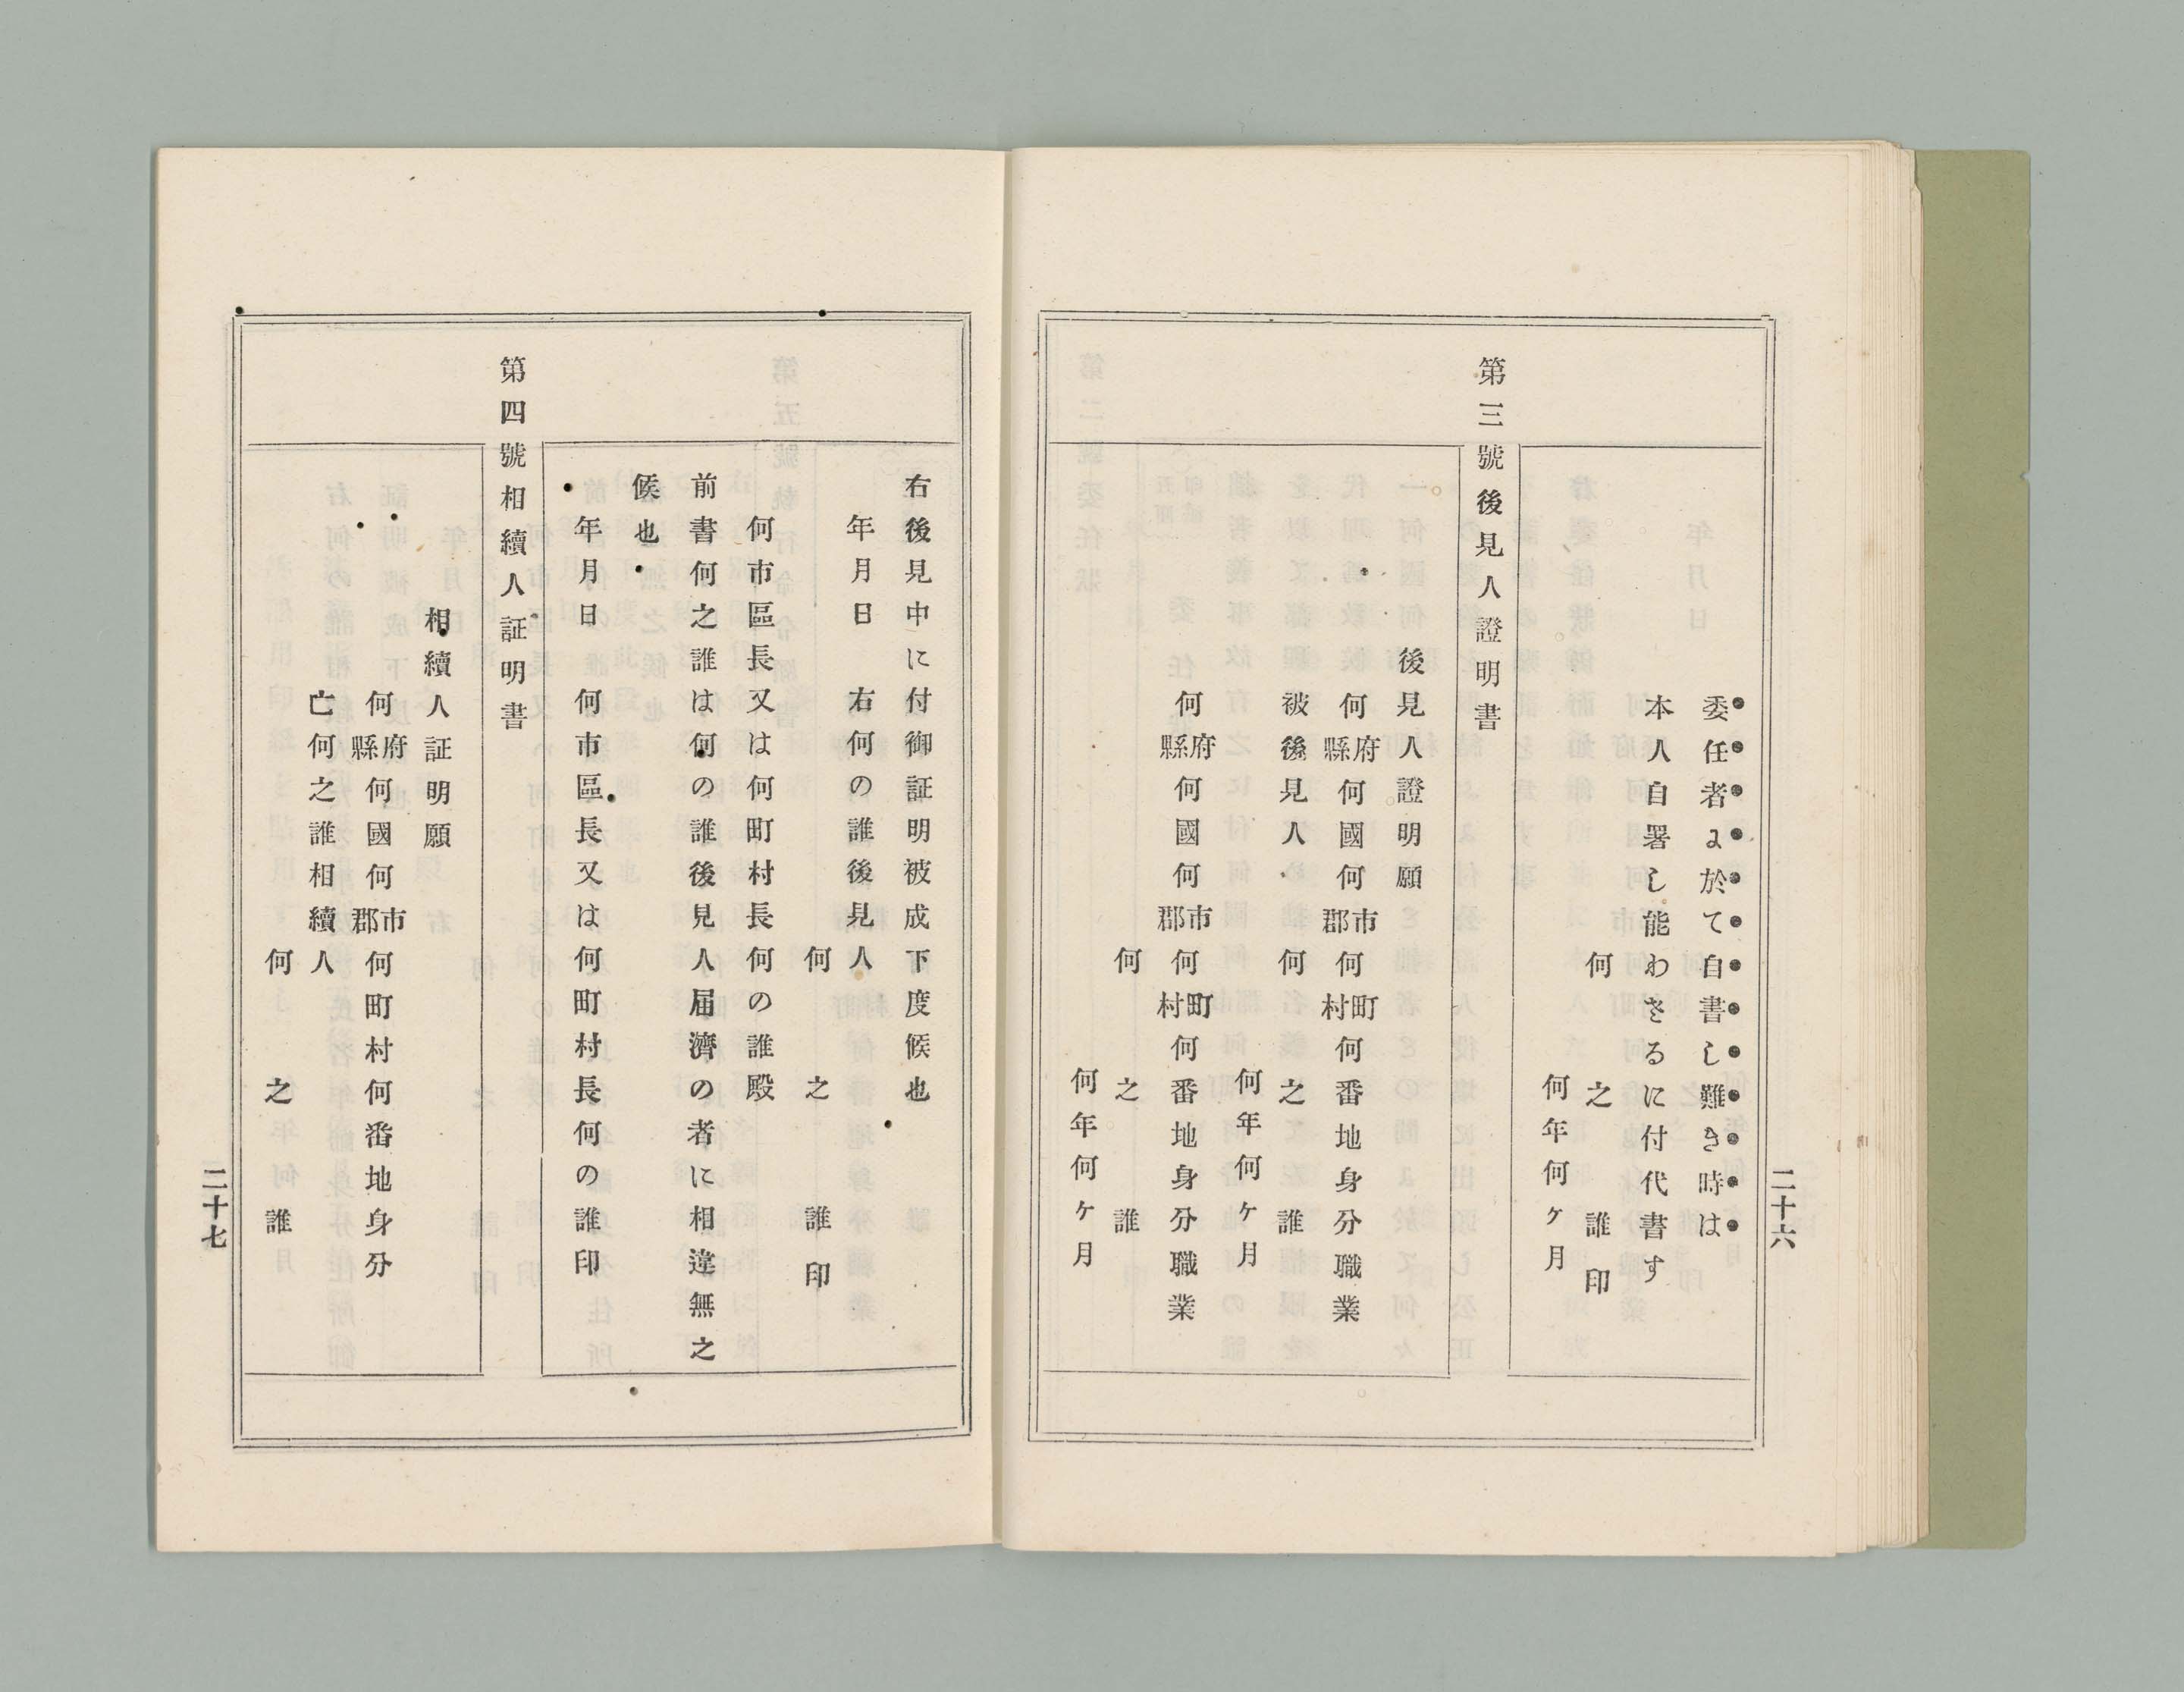 委任者ゟ於て自書し難き時は
本人自署し能わさるに付代書す
何之誰印
何年何ケ月
第三號後見人證明書
後見人證明願
何府縣何國何市郡何町村何番地身分職業
被後見人何之誰
何年何ケ月
何府縣何國何市郡何町村何番地身分職業
何之誰
何年何ケ月
二十六
右後見中に付御証明被成下度候也
年月日右何の誰後見人
何之誰印
何市區長又は何町村長何の誰殿
前書何之誰は何の誰後見人届濟の者に相違無之
候也
年月日何市區長又は何町村長何の誰印
第四號相續人証明書
相續人証明願
何府縣何國何市郡何町村何番地身分
亡何之誰相續人
何之誰
二十七